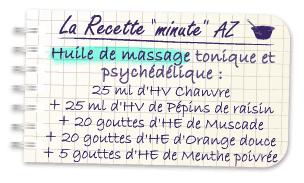 La Recette "minute" AZ
Huile de massage tonique et
psychédélique :
25 ml d'HV Chanvre
+ 25 ml d'HV de Pépins de raisin
+ 20 gouttes d'HE de Muscade
+ 20 gouttes d'HE d'Orange douce
+ 5 gouttes d'HE de Menthe poivrée